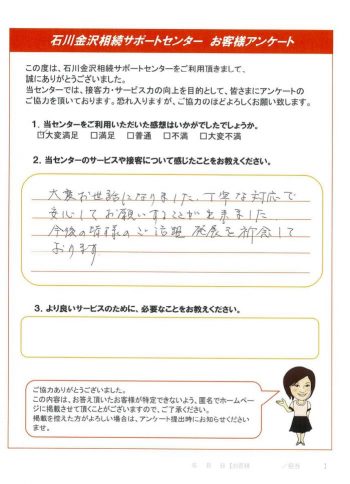 石川金沢相続サポートセンター お客様アンケート
この度は、石川金沢相続サポートセンターをご利用頂きまして、
誠にありがとうございました。
当センターでは、接客力・サービス力の向上を目的として、皆さまにアンケートの
ご協力を頂いております。恐れ入りますが、ご協力のほどよろしくお願い致します。
1．当センターをご利用いただいた感想はいかがでしたでしょうか。
☑大変満足 □満足 □普通 □不満 □大変不満
2．当センターのサービスや接客について感じたことをお教えください。
大変お世話になりました。丁寧な対応で
安心してお願いすることが出来ました。
今後の皆様のご活躍 発展を祈念して
おります
3．より良いサービスのために、必要なことをお教えください。
ご協力ありがとうございました。
この内容は、お答え頂いたお客様が特定できないよう、匿名でホームペー
ジに掲載させて頂くことがございますので、ご了承ください。
掲載を控えた方がよろしい場合は、アンケート提出時にお知らせください
ませ。
年 月 日【お客様 ／担当 】